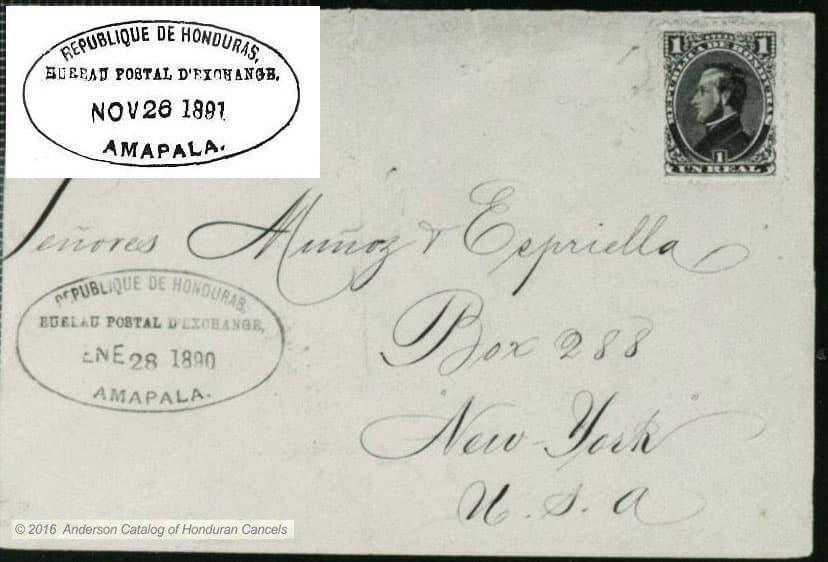 REPUBLIQUE DE HONDURAS,
BUREAU POSTAL D'EXCHANGE,
NOV 26 1891
AMAPALA.
1 1
REPUBLICA DE HONDURAS
1
UN REAL
Señores Muñoz & Espriella
Box 288
New-York
U. S. A
REPUBLIQUE DE HONDURAS,
BUREAU POSTAL D'EXCHANGE,
ENE 28 1890
AMAPALA.
© 2016 Anderson Catalog of Honduran Cancels